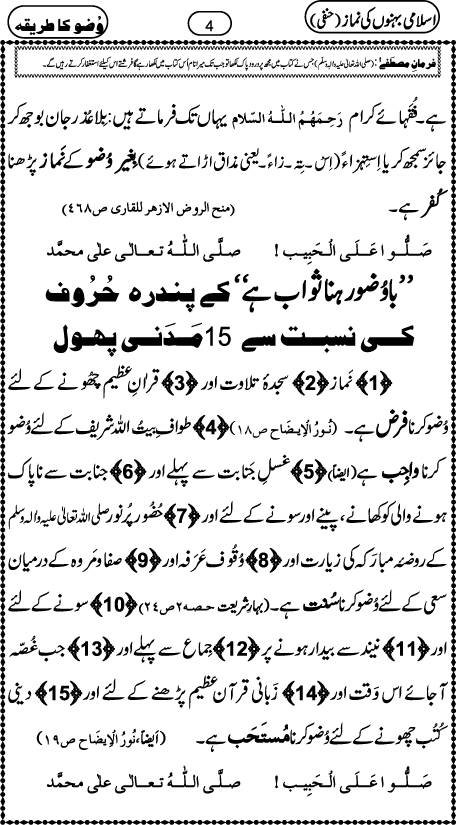 اسلامی بہنوں کی نماز (حنفی)
4
وُضو کا طریقہ
فرمانِ مصطفٰے: (صلی اللہ تعالیٰ علیہ والہ وسلم) جس نے کتاب میں مجھ پر درود پاک لکھا تو جب تک میرا نام اُس کتاب میں لکھا رہے گا فرشتے اس کیلئے استغفار کرتے رہیں گے۔
ہے۔ فُقَہائے کرام رَحِمَہُمُ اللہُ السّلام یہاں تک فرماتے ہیں: بِلا عُذر جان بوجھ کر
جائز سمجھ کر یا اِستِہزاءً (اِس۔ تِہ۔ زاءً۔ یعنی مذاق اڑاتے ہوئے) بِغیر وُضو کے نَماز پڑھنا
کُفر ہے۔ (منح الروض الازھر للقاری ص۴۶۸)
صَلُّوا عَلَی الْحَبِیب! صلَّی اللہُ تعالٰی علٰی محمَّد
”باوُضو رہنا ثواب ہے“ کے پندرہ حُرُوف
کی نسبت سے 15 مَدَنی پھول
﴿1﴾ نَماز ﴿2﴾ سجدۂ تلاوت اور ﴿3﴾ قراٰنِ عظیم چھونے کے لئے
وُضو کرنا فرض ہے۔ (نُورُ الْاِیضاح ص۱۸) ﴿4﴾ طوافِ بیتُ اللہ شریف کے لئے وُضو
کرنا واجِب ہے (ایضاً) ﴿5﴾ غسلِ جَنابت سے پہلے اور ﴿6﴾ جنابت سے ناپاک
ہونے والی کو کھانے، پینے اور سونے کے لئے اور ﴿7﴾ حُضُورِ پُرنور صلی اللہ تعالیٰ علیہ والہ وسلم
کے روضۂ مبارَکہ کی زیارت اور ﴿8﴾ وُقوفِ عَرَفہ اور ﴿9﴾ صفا و مَروہ کے درمیان
سَعی کے لئے وُضو کرنا سُنّت ہے۔ (بہارِ شریعت حصہ ۲ ص۲۴) ﴿10﴾ سونے کے لئے
اور ﴿11﴾ نیند سے بیدار ہونے پر ﴿12﴾ جماع سے پہلے اور ﴿13﴾ جب غُصّہ
آجائے اس وَقت اور ﴿14﴾ زَبانی قرآنِ عظیم پڑھنے کے لئے اور ﴿15﴾ دینی
کُتُب چھونے کے لئے وُضو کرنا مُستَحَب ہے۔ (اَیضاً، نُورُ الْاِیضاح ص۱۹)
صَلُّوا عَلَی الْحَبِیب! صلَّی اللہُ تعالٰی علٰی محمَّد